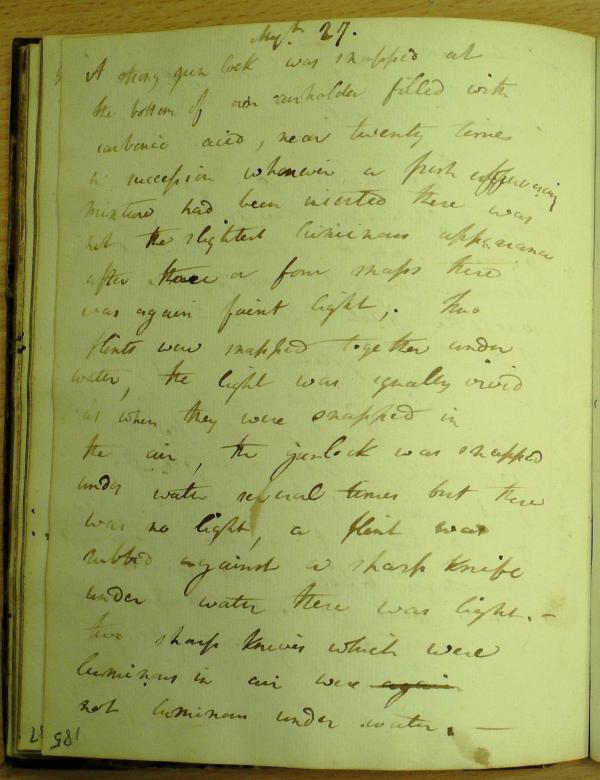 27.
A strong gun lock was snapped at
the bottom of an airholder filled with
carbonic acid, near twenty times
in succession whenever a fresh effervescing
mixture had been inserted there was
not the slightest luminous appearance
after three or four snaps there
was again faint light,. Two
flints were snapped together under
water, the light was equally vivid
as when they were snapped in
the air, the gunlock was snapped
under water several times but there
was no light, a flint was
rubbed against a sharp knife
under water there was light. –
two sharp knives which were
luminous in air were again
not luminous under water. —
185